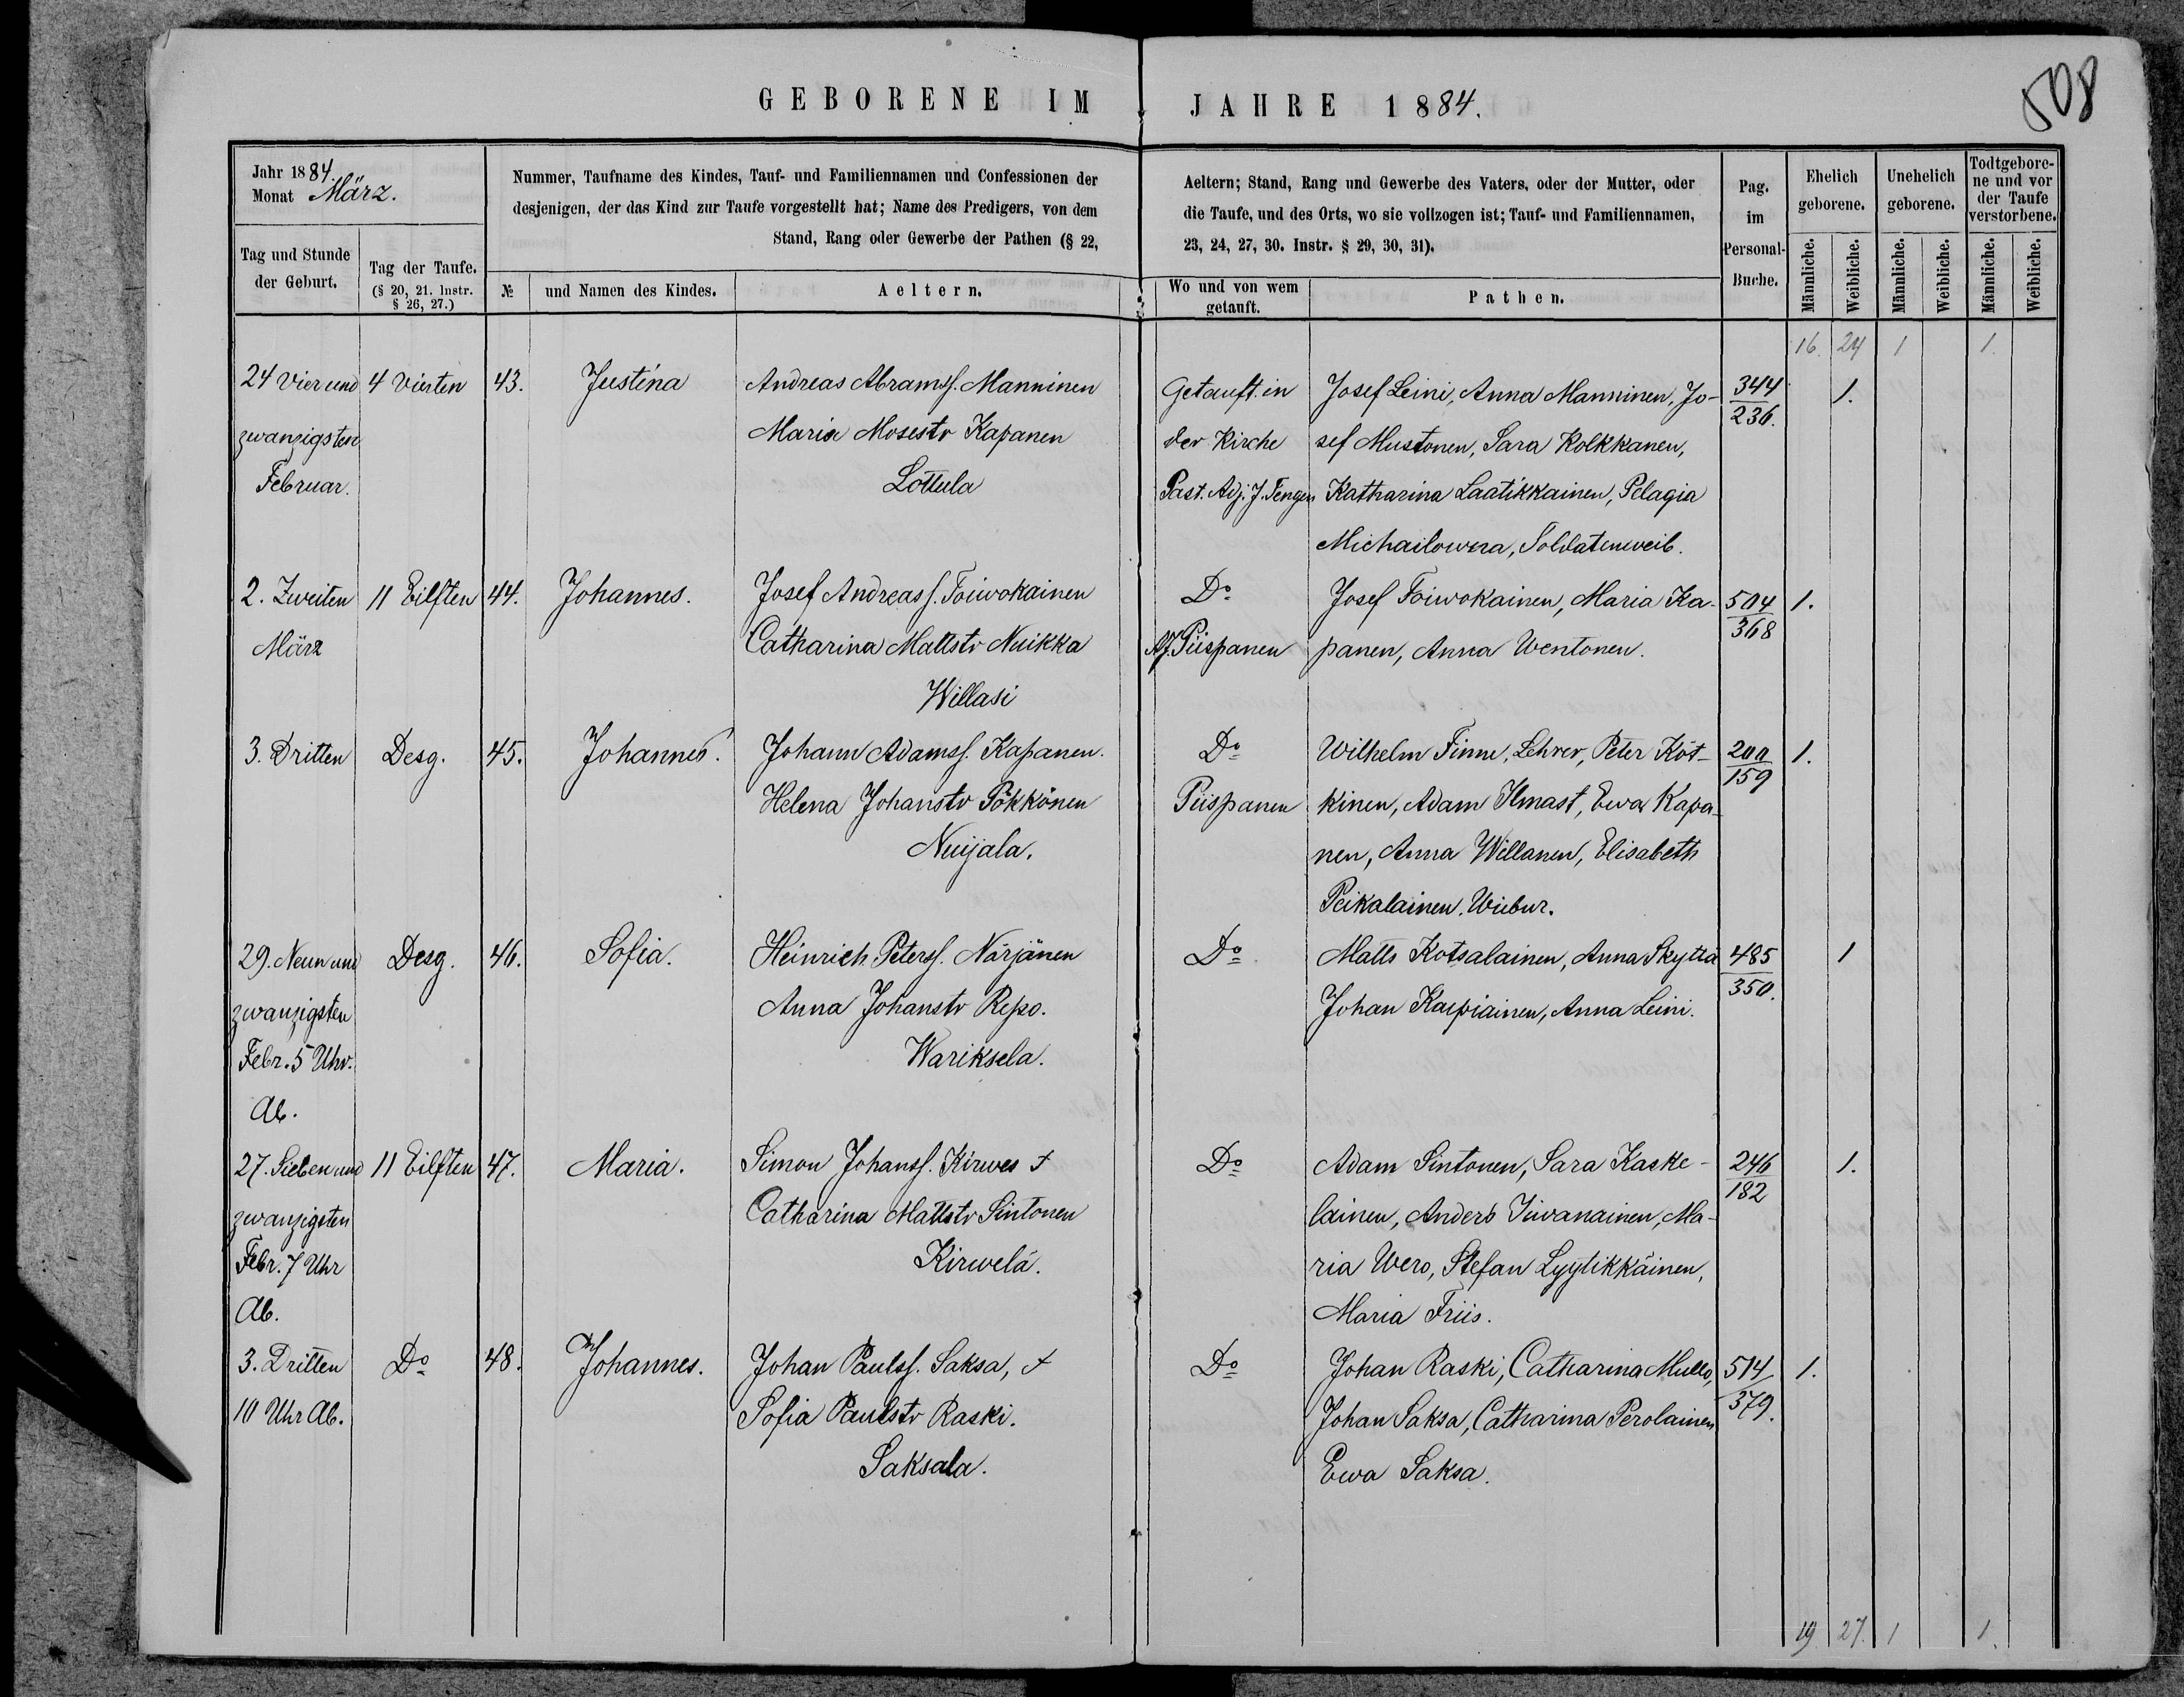 GEBORENE IM JAHRE 1884.
508
Jahr 1884.
Monat März.
Nummer, Taufname des Kindes, Tauf- und Familiennamen und Confessionen der
desjenigen, der das Kind zur Taufe vorgestellt hat; Name des Predigers, von dem
Stand, Rang oder Gewerbe der Pathen (§ 22,
Aeltern; Stand, Rang und Gewerbe des Vaters, oder der Mutter, oder
die Taufe, und des Orts, wo sie vollzogen ist; Tauf- und Familiennamen,
23, 24, 27, 30. Instr. § 29, 30, 31).
Pag.
im
Personal-
Buche.
Ehelich
geborene.
Unehelich
geborene.
Todtgebore-
ne und vor
der Taufe
verstorbene.
Tag und Stunde
der Geburt.
Tag der Taufe.
(§ 20, 21. Instr.
§ 26, 27.)
№
und Namen des Kindes.
Aeltern.
Wo und von wem
getauft.
Pathen.
Männliche.
Weibliche.
Männliche.
Weibliche.
Männliche.
Weibliche.
16. 24 1 1.
24 Vier und 4 Vierten 43. Justina Andreas Abramss. Manninen Getauft in Josef Leini, Anna Manninen, Jo- 344 1.
zwanzigsten Maria Mosestr Kapanen der Kirche sef Mustonen, Sara Kolkkanen, 236.
Februar. Lottula Past. Adj. J. Fengen Katharina Laatikkainen, Pelagia
Michailowna, Soldatenweib.
2. Zweiten 11 Eilften 44. Johannes. Josef Andreass. Toiwokainen Do Josef Toiwokainen, Maria Ka- 504 1.
März Catharina Mattstr Nuikka Piispanen panen, Anna Wentonen. 368
Willasi
3. Dritten Desg. 45. Johannes. Johann Adamss. Kapanen. Do Wilhelm Finne, Lehrer, Peter Köt- 200 1.
Helena Johanstr Pökkönen Piispanen kinen, Adam Ilmast, Ewa Kapa- 159
Nuijala. nen, Anna Willanen, Elisabeth
Peikalainen.
29. Neun und Desg. 46. Sofia. Heinrich Peterss. Närjänen Do Matts Kotsalainen, Anna Skyttä 485 1
zwanzigsten Anna Johanstr Repo. Johan Karpiainen, Anna Leini. 350.
Febr. 5 Uhr. Wariksela.
Ab.
27. Sieben und 11 Eilften 47. Maria. Simon Johanss. Kirwes + Do Adam Sintonen, Sara Kaske- 246 1.
zwanzigsten Catharina Mattstr Sintonen lainen, Anders Iiwanainen, Ma- 182
Febr. 7 Uhr Kirwelä. ria Wero, Stefan Lyytikkäinen,
Ab. Maria Friis.
3. Dritten Do 48. Johannes. Johan Paulss. Saksa, + Do Johan Raski, Catharina Mullo, 514 1.
10 Uhr Ab. Sofia Paulstr Raski. Johan Saksa, Catharina Perolainen 379.
Saksala. Ewa Saksa.
19 27. 1 1.